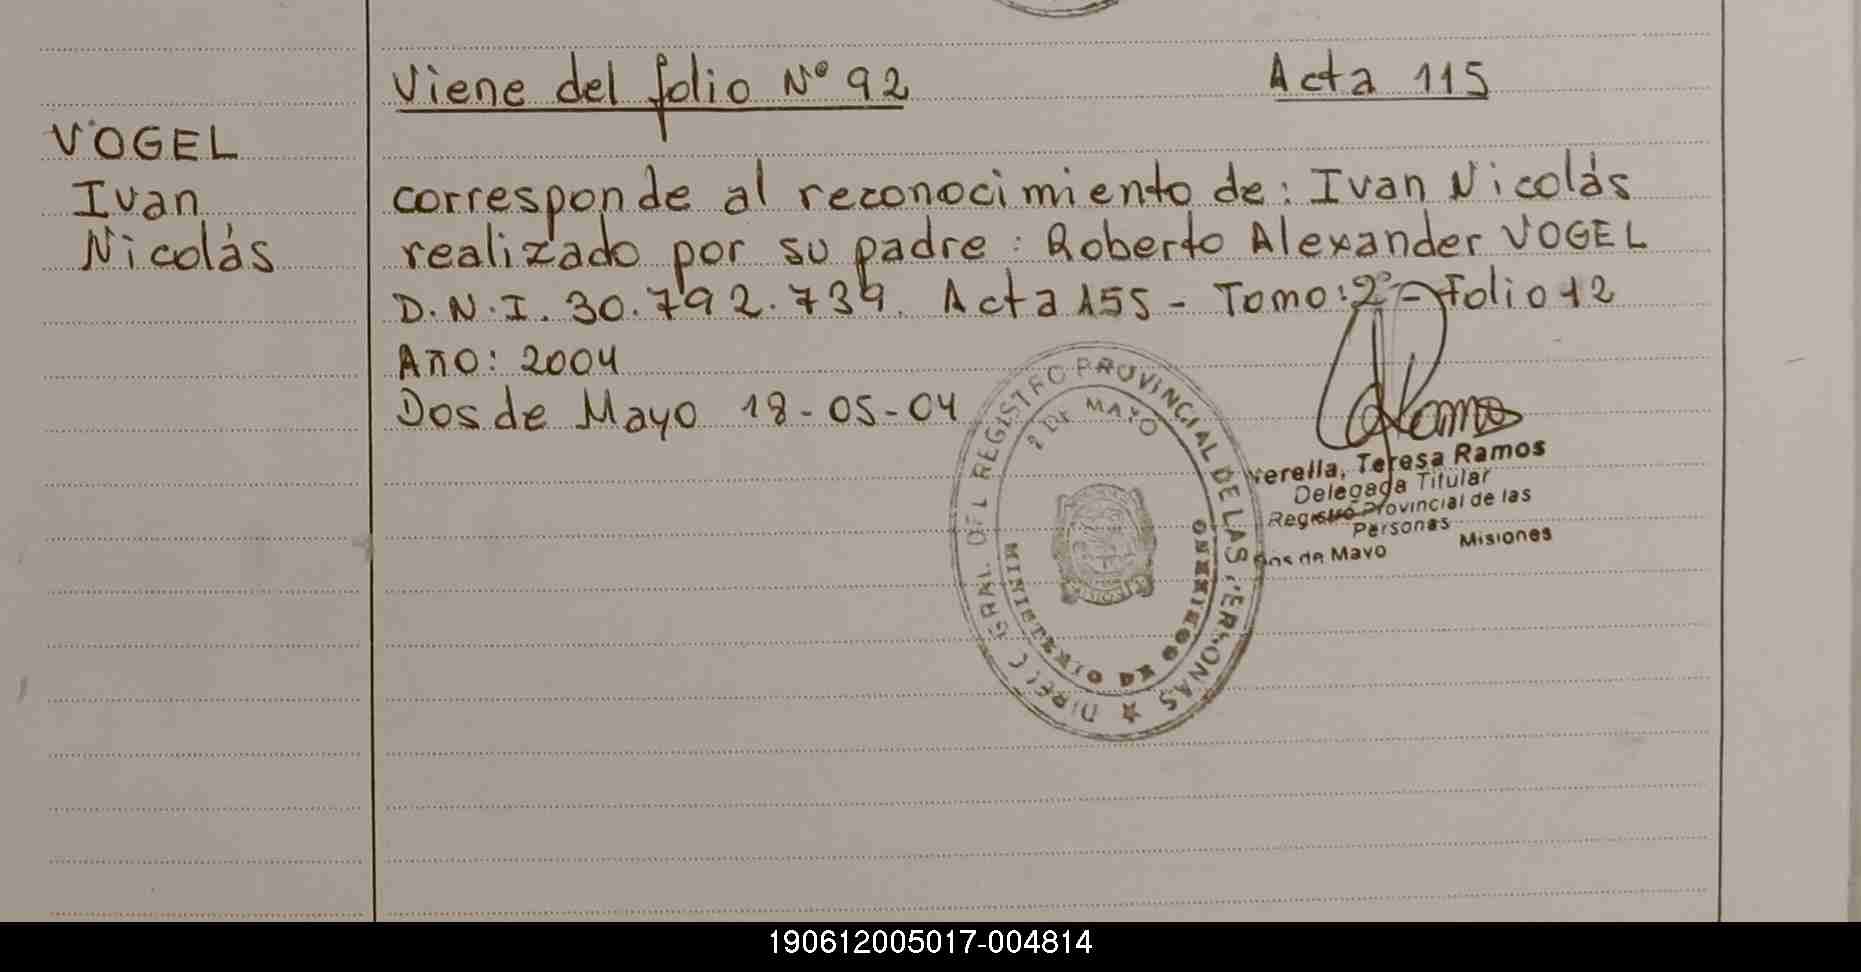 Viene del folio Nº 92 Acta 115
VOGEL
Ivan
Nicolás
corresponde al reconocimiento de: Ivan Nicolás
realizado por su padre: Roberto Alexander VOGEL
D.N.I. 30.792.739. Acta 155 - Tomo: 2º - Folio 12
Año: 2004
Dos de Mayo 18-05-04
DIRECC GRAL. DEL REGISTRO PROVINCIAL DE LAS PERSONAS
2 DE MAYO
MINISTERIO DE GOBIERNO
Ramos
Teresa Ramos
Delegada Titular
Registro Provincial de las
Personas
Dos de Mayo Misiones
190612005017-004814